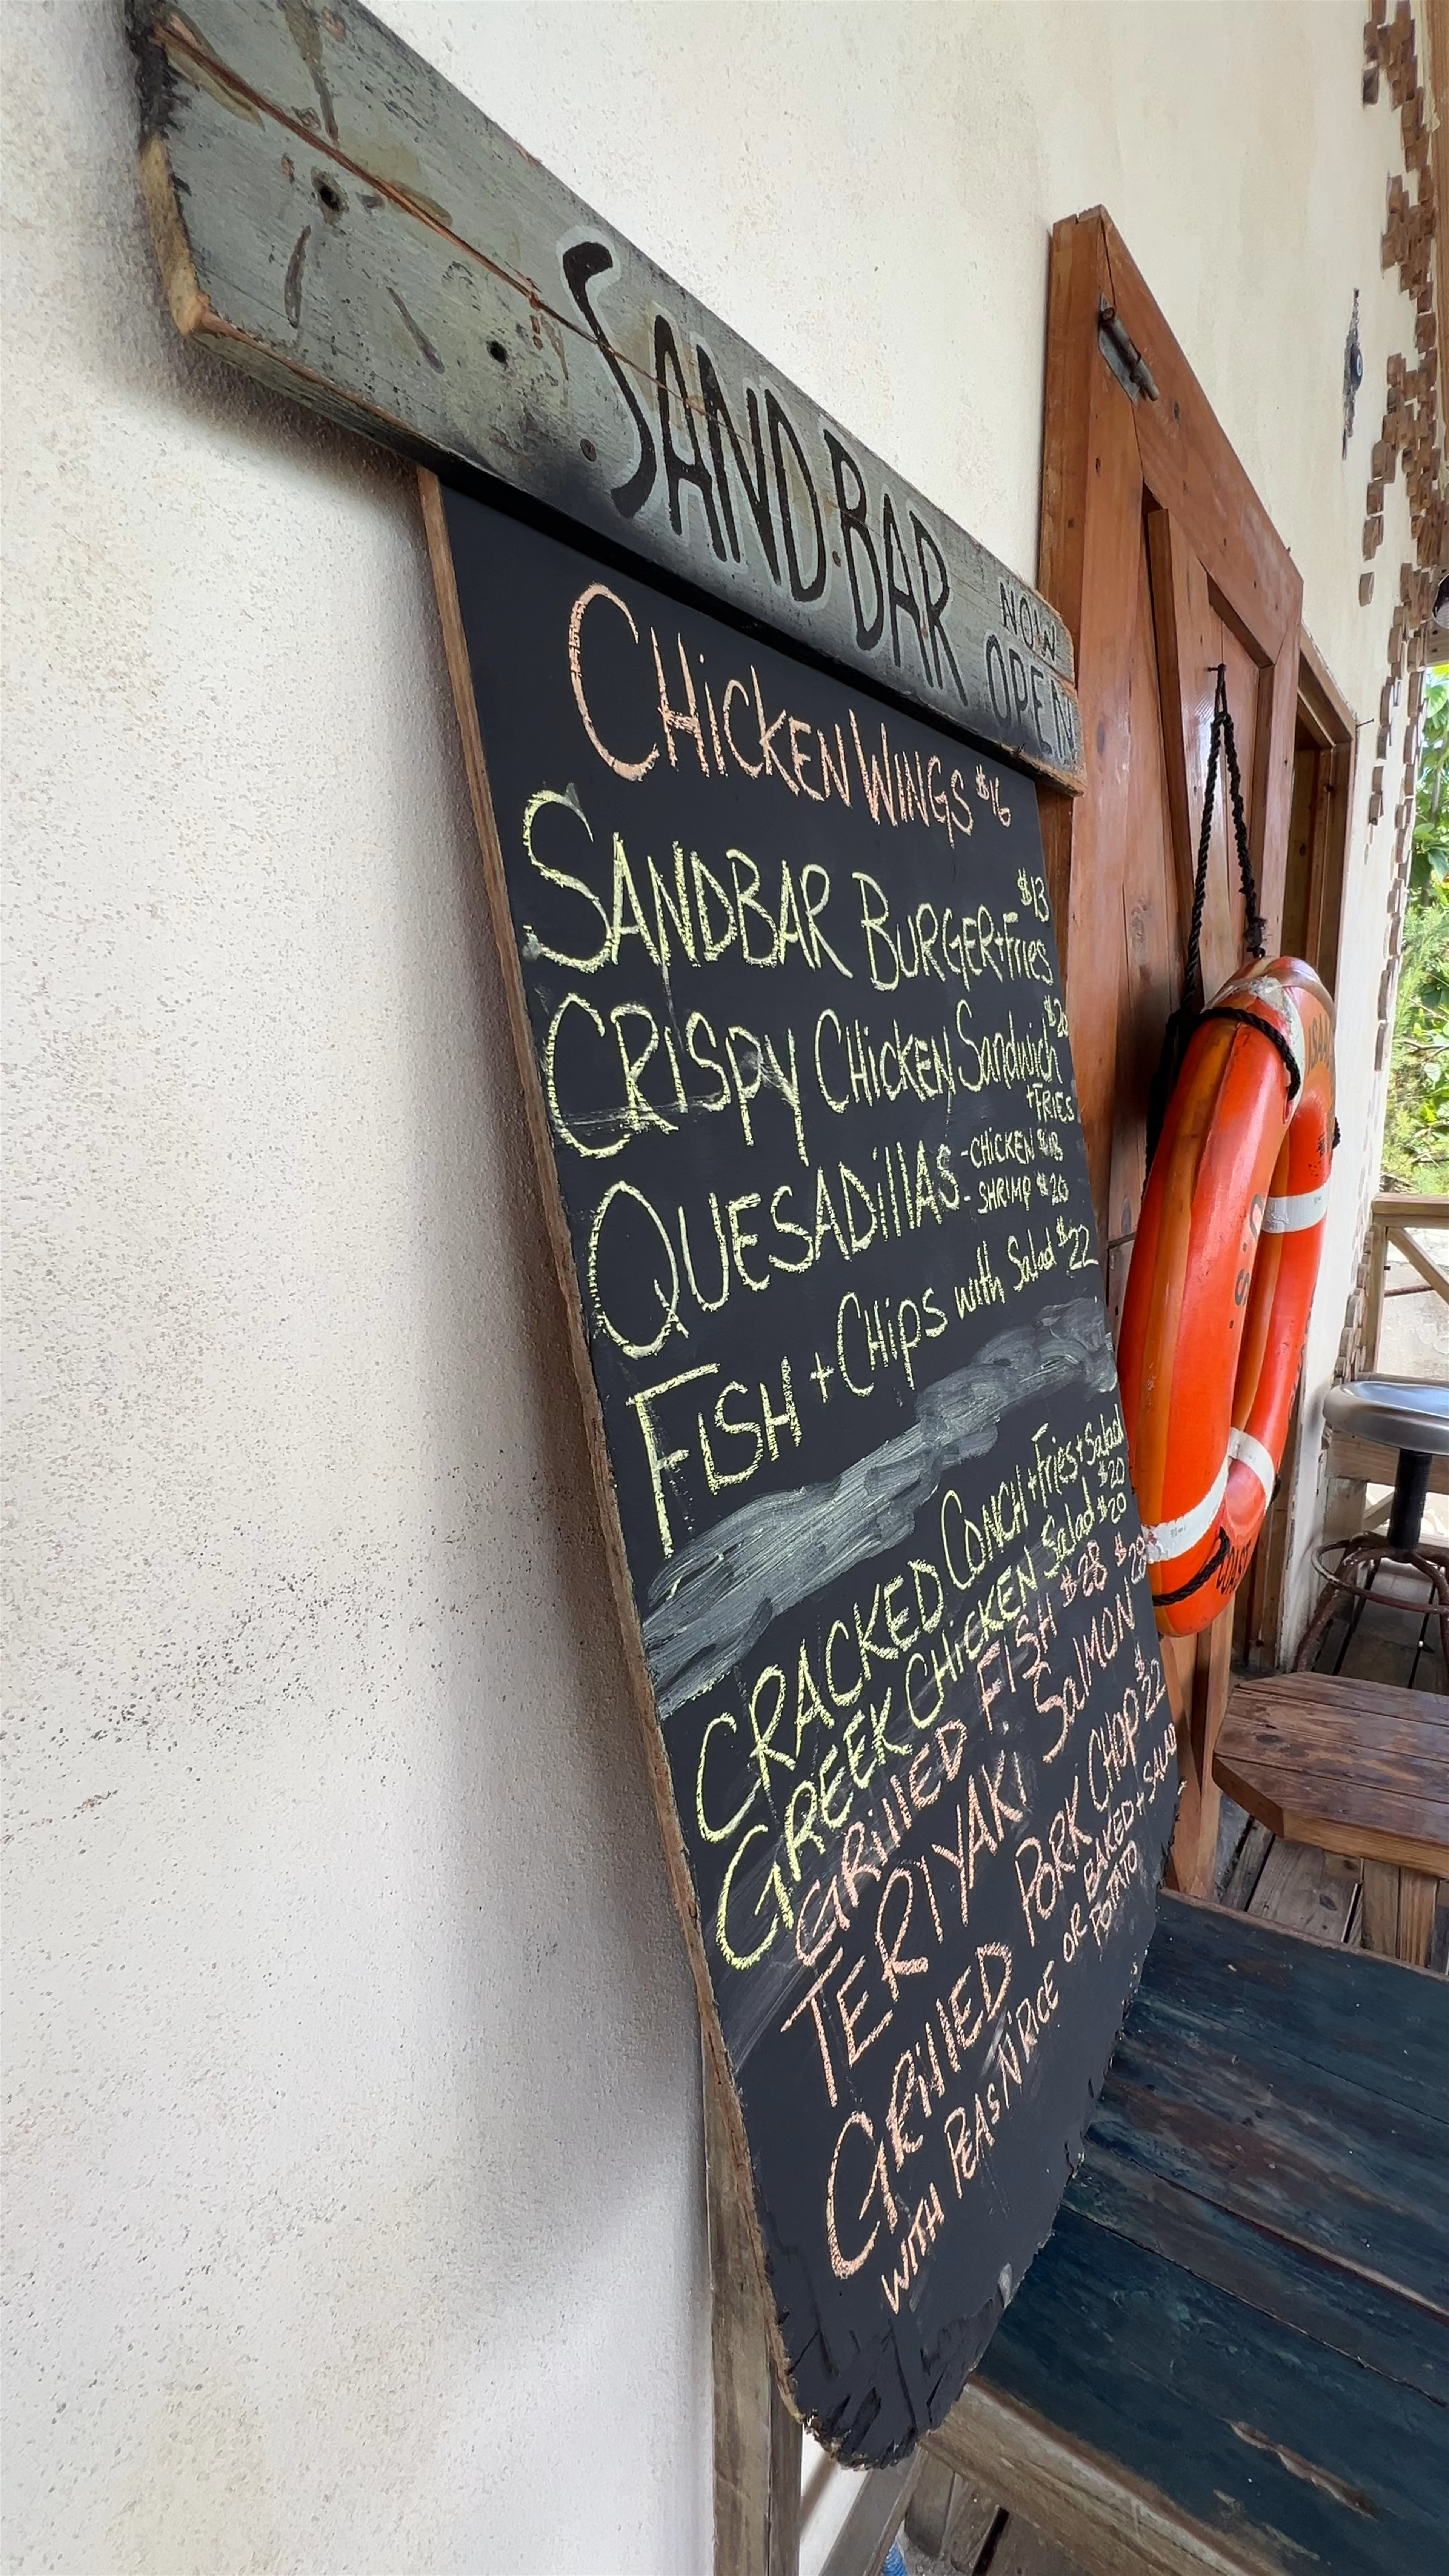 SAND·BAR
NOW
OPEN
CHiCKEN WINGS $16
$13
SANDBAR BURGER+Fries
$20
CRISPY CHiCKEN Sandwich
+FRIES
QUESADillAS - CHiCKEN $18
- SHRIMP $20
FiSH + CHips with Salad $22
CRACKED CONCH + Fries + Salad
$20
GREEK CHiCKEN Salad $20
GRillED FISH $28
$28
TERIYAKI SalMON
GRillED PORK CHOP $22
WITH PEAS N RICE OR BAKED + SALAD
POTATO
COAST